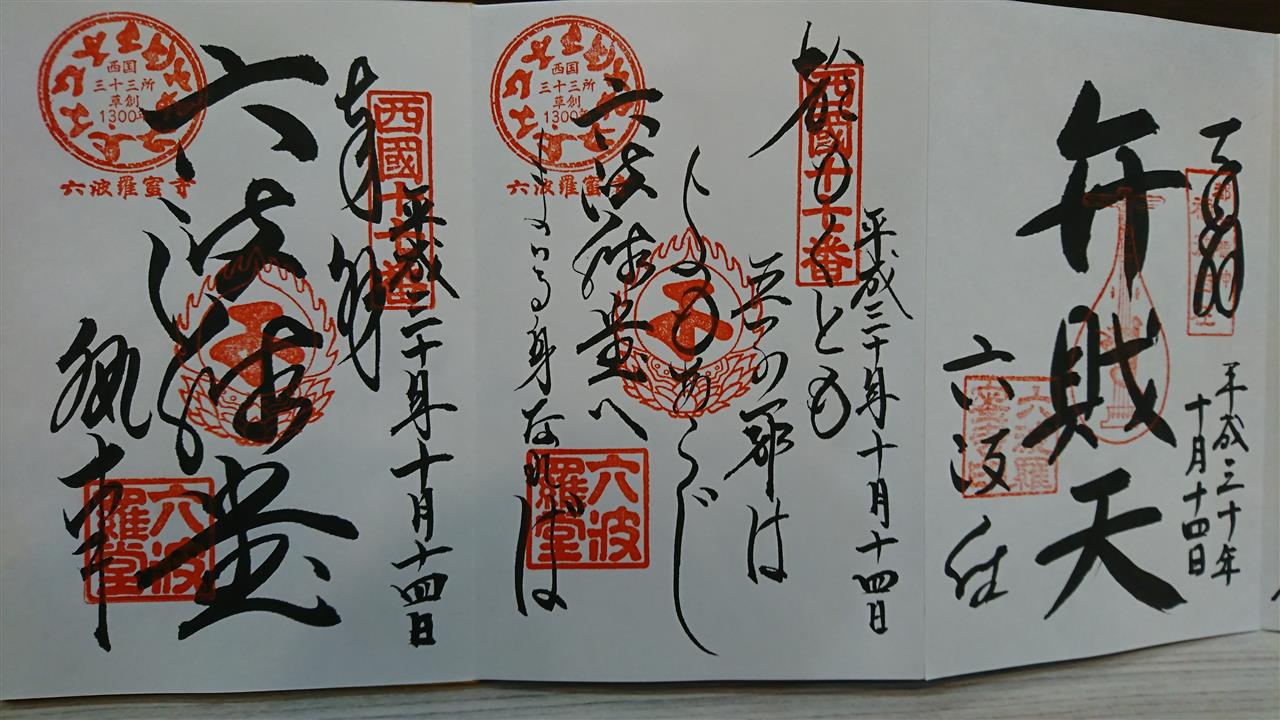 奉拝
平成三十年十月十四日
西國十七番
六波羅堂
執事
西国
三十三所
草創
1300年
六波羅蜜寺
六波羅堂
重くとも
平成三十年十月十四日
西國十七番
五つの罪は
よもあらじ
六波羅堂へ
まいる身なれば
西国
三十三所
草創
1300年
六波羅蜜寺
六波羅堂
平成三十年
十月十四日
弁財天
六波